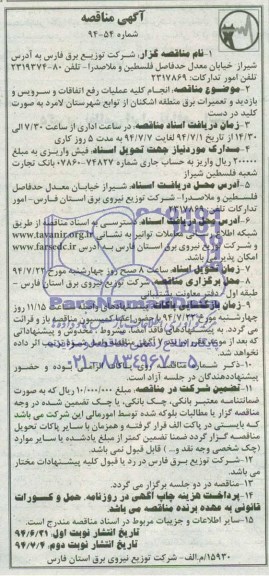 آگهی مناقصه
شماره ۵۴-۹۴
۱-نام مناقصه گزار: شرکت توزیع برق فارس به آدرس
شیراز خیابان معدل حدفاصل فلسطین و ملاصدرا- تلفن ۸۰-۲۳۱۹۳۷۴
تلفن امور تدارکات: ۲۳۱۷۸۶۹
۲-موضوع مناقصه: انجام کلیه عملیات رفع اتفاقات و سرویس و
بازدید و تعمیرات برق منطقه اشکنان از توابع شهرستان لامرد به صورت
کلید در دست
۳-زمان دریافت اسناد مناقصه: در ساعت اداری از ساعت ۷/۳۰ الی
۱۴/۳۰ از تاریخ ۹۴/۷/۱ لغایت ۹۴/۷/۷ به مدت ۵ روز کاری
۴-مدارک موردنیاز جهت تحویل اسناد: فیش واریزی به مبلغ
۲۰۰۰۰۰ ریال واریز به حساب جاری شماره ۰۷۸۶۰۰۷۴۸۲۷ بانک تجارت
شعبه فلسطین شیراز
۵-آدرس محل دریافت اسناد: شیراز خیابان معدل حدفاصل
فلسطین و ملاصدرا- شرکت توزیع نیروی برق استان فارس- امور
تدارکات تلفن ۲۳۱۷۸۶۹
۶- دسترسی به اسناد مناقصه از طریق
شبکه اطلاع معاملات توانیر به نشانی www.tavanir.org.ir
و شرکت توزیع نیروی برق استان فارس به آدرس www.farsedc.ir
امکان پذیر
۷-زمان تحویل اسناد: ساعت ۸ صبح روز چهارشنبه مورخ ۹۴/۷/۲۲
۸-محل برگزاری مناقصه: شرکت توزیع نیروی برق استان فارس -
طبقه اول دفتر معاونت پشتیبانی
۹- ساعت ۱۱/۱۵ روز
چهارشنبه مورخ ۹۴/۷/۲۲ با حضور اعضا کمیسیون مناقصه باز و قرائت
می گردد. به پیشنهادهای فاقد امضا، مشروط، مخدوش و پیشنهاداتی
که بعد از واصل شود ترتیب اثر داده
نخواهد شد.
۱۰-ذکر شماره مناقصه روی پاکات الزامی بوده و حضور
پیشنهاددهندگان در جلسه آزاد است.
۱۱-تضمین شرکت در مناقصه: مبلغ ۱۰/۰۰۰/۰۰۰ ریال که به صورت
ضمانتنامه معتبر بانکی، چک بانکی، یا چک تضمین شده در وجه
مناقصه گزار یا مطالبات بلوکه شده توسط امورمالی این شرکت می باشد
که بایستی در پاکت الف قرار گرفته و همزمان با سایر پاکات تحویل
مناقصه گزار گردد ضمنا تضمین کمتر از مبلغ یادشده یا سایر موارد
(چک شخصی وجه نقد و...) قابل قبول نمی باشد.
۱۲-شرکت توزیع برق فارس در رد یا قبول کلیه پیشنهادات مختار
می باشد.
۱۳-مناقصه در دو جلسه برگزار می گردد.
۱۴-پرداخت هزینه چاپ آگهی در روزنامه، حمل و کسورات
قانونی به عهده برنده مناقصه می باشد.
۱۵-سایر اطلاعات و جزییات مربوط در اسناد مناقصه مندرج است.
تاریخ انتشار نوبت اول: ۹۴/۶/۳۱
تاریخ انتشار نوبت دوم: ۹۴/۷/۴
۱۵۹۳۰/م.الف- شرکت توزیع نیروی برق استان فارس
ParsNamadData
۰۲۱-۸۸۳۴۹۶۷۰-۵